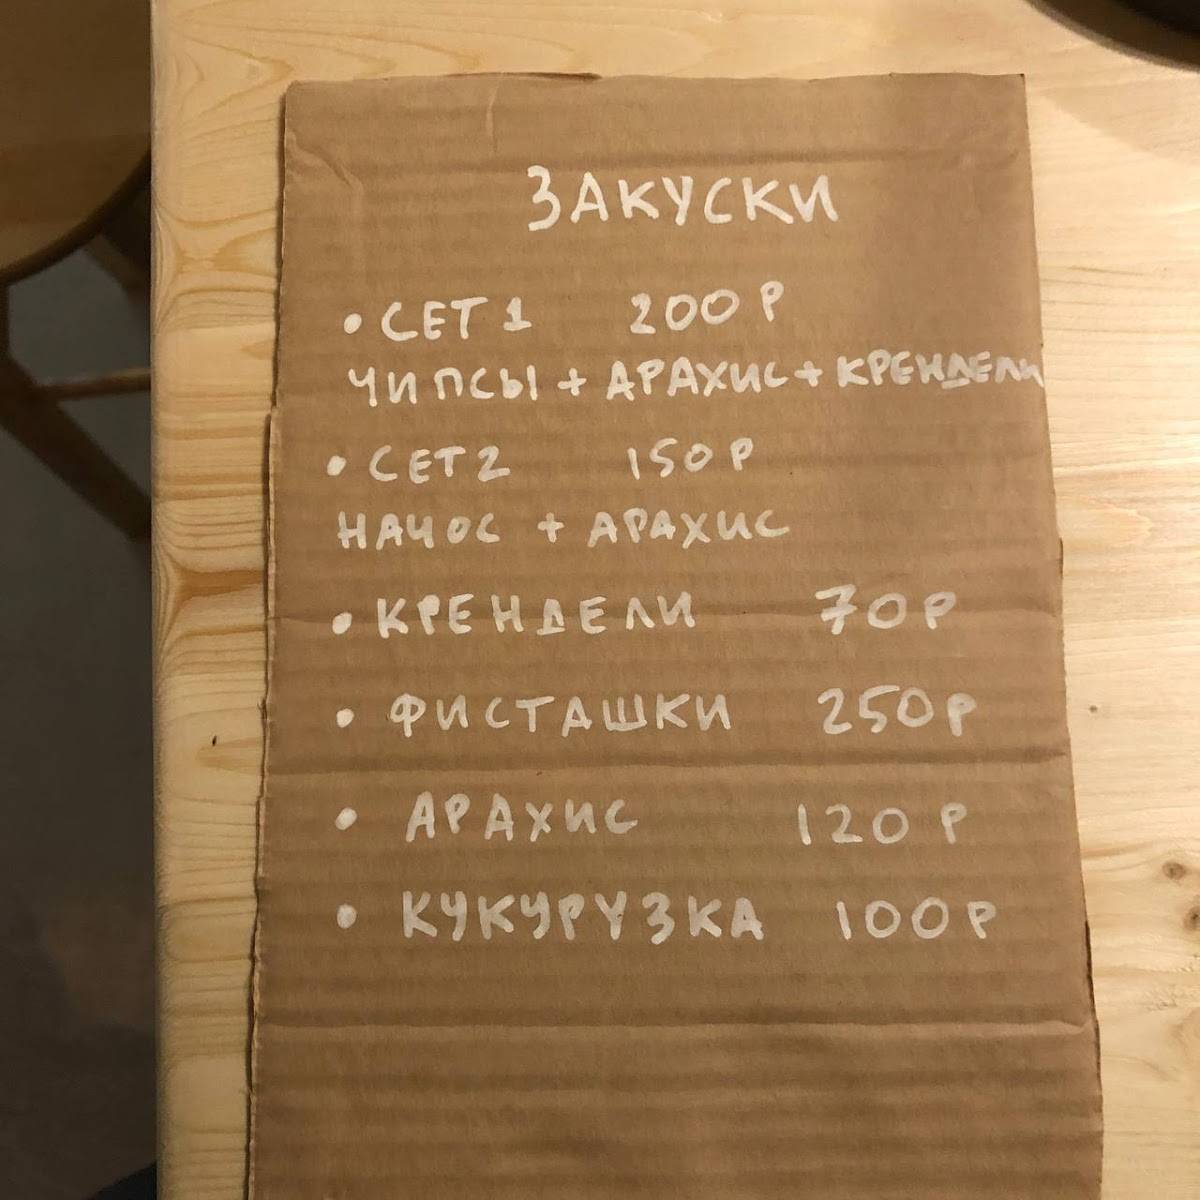 ЗАКУСКИ
• СЕТ 1 200 Р
ЧИПСЫ + АРАХИС + КРЕНДЕЛИ
• СЕТ 2 150 Р
НАЧОС + АРАХИС
• КРЕНДЕЛИ 70 Р
• ФИСТАШКИ 250 Р
• АРАХИС 120 Р
• КУКУРУЗКА 100 Р